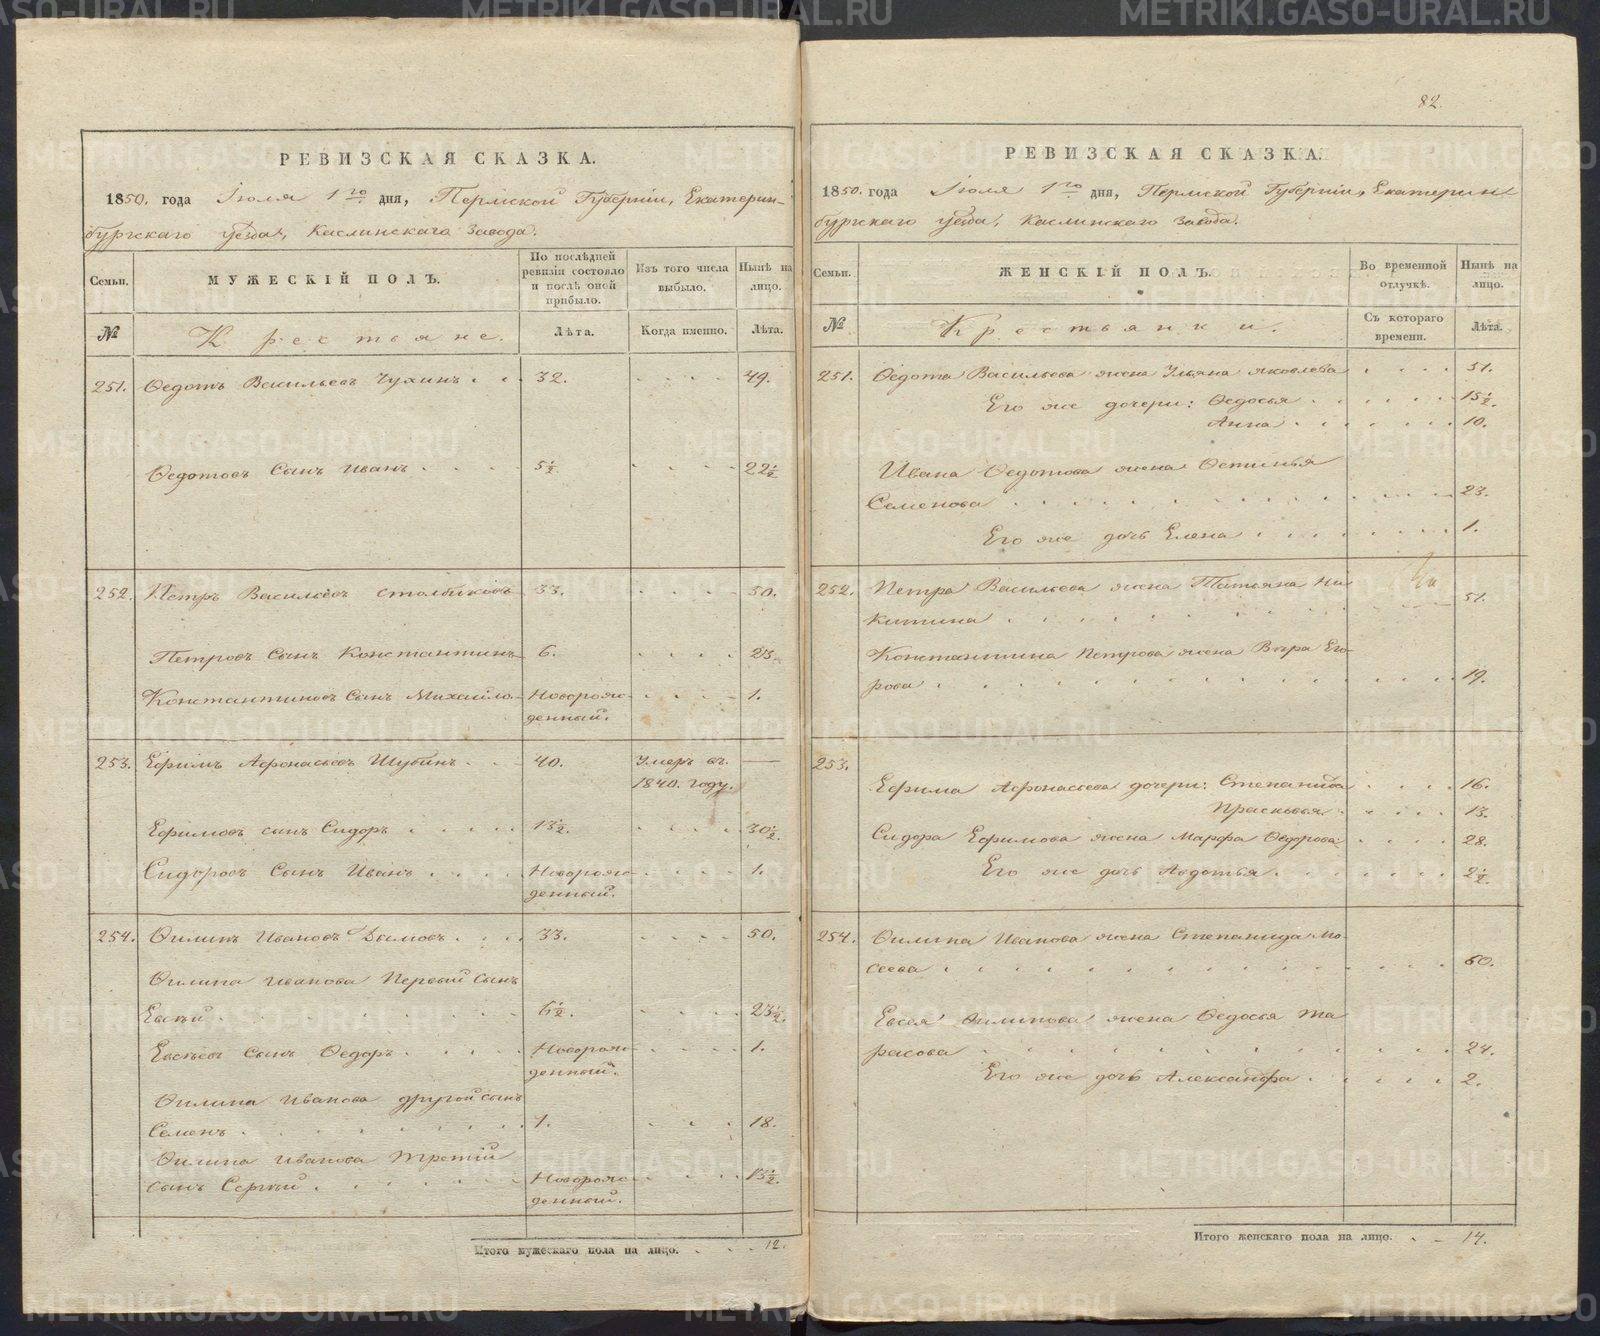 РЕВИЗСКАЯ СКАЗКА.
1850. года Іюля 1го дня, Пермской Губерніи, Екатерин-
бургскаго уѣзда, Каслинскаго Завода.
Семьи. МУЖЕСКІЙ ПОЛЪ. По послѣдней ревизіи состояло и послѣ оной прибыло. Изъ того числа выбыло. Нынѣ на лицо.
№ Крестьяне. Лѣта. Когда именно. Лѣта.
251. Ѳедотъ Васильевъ Чухинъ 32. 49.
Ѳедотовъ Сынъ Иванъ 5½ 22½
252. Петръ Васильевъ Столбиковъ 33. 50.
Петровъ Сынъ Константинъ 6. 23.
Константиновъ Сынъ Михайло Новорож- 1.
денный.
253. Ефимъ Афонасьевъ Шубинъ 40. Умеръ въ —
1840. году.
Ефимовъ сынъ Сидоръ 13½. 30½.
Сидоровъ Сынъ Иванъ Новорож- 1.
денный.
254. Филипъ Ивановъ Дымовъ 33. 50.
Филипа Иванова Первый Сынъ
Евсѣй 6½. 23½.
Евсѣевъ Сынъ Ѳедоръ Новорож- 1.
денный.
Филипа Иванова другой сынъ
Семенъ 1. 18.
Филипа Иванова Третій
сынъ Сергѣй Новорож- 13½.
денный.
Итого мужескаго пола на лицо. 12.
82.
РЕВИЗСКАЯ СКАЗКА.
1850. года Іюля 1го дня, Пермской Губерніи, Екатерин-
бургскаго уѣзда, Каслинскаго Завода.
Семьи. ЖЕНСКІЙ ПОЛЪ. Во временной отлучкѣ. Нынѣ на лицо.
№ Крестьянки. Съ котораго времени. Лѣта.
251. Ѳедота Васильева жена Ульяна Яковлева 51.
Его же дочери: Ѳедосья 15½.
Анна 10.
Ивана Ѳедотова жена Устинья
Семенова 23.
Его же дочь Елена 1.
252. Петра Васильева жена Татьяна Ни-
китина 51.
Константина Петрова жена Вѣра Его-
рова 19.
253.
Ефима Афонасьева дочери: Степанида 16.
Прасковья 13.
Сидора Ефимова жена Марфа Ѳедорова 28.
Его же дочь Авдотья 2½.
254. Филипа Иванова жена Степанида Мо-
сеева 60.
Евсея Филипова жена Ѳедосья Та-
расова 24.
Его же дочь Александра 2.
Итого женскаго пола на лицо. 14.
METRIKI.GASO-URAL.RU